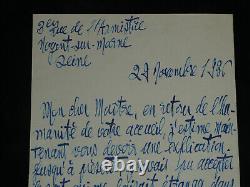 3 rue de l'Armistice
Nogent-sur-Marne
Seine
28 Novembre 1936
Mon cher Maître, en retour de l'hu-
manité de votre accueil, j'estime main-
tenant vous devoir une explication.
Jusqu'à présent j'avais pu accepter